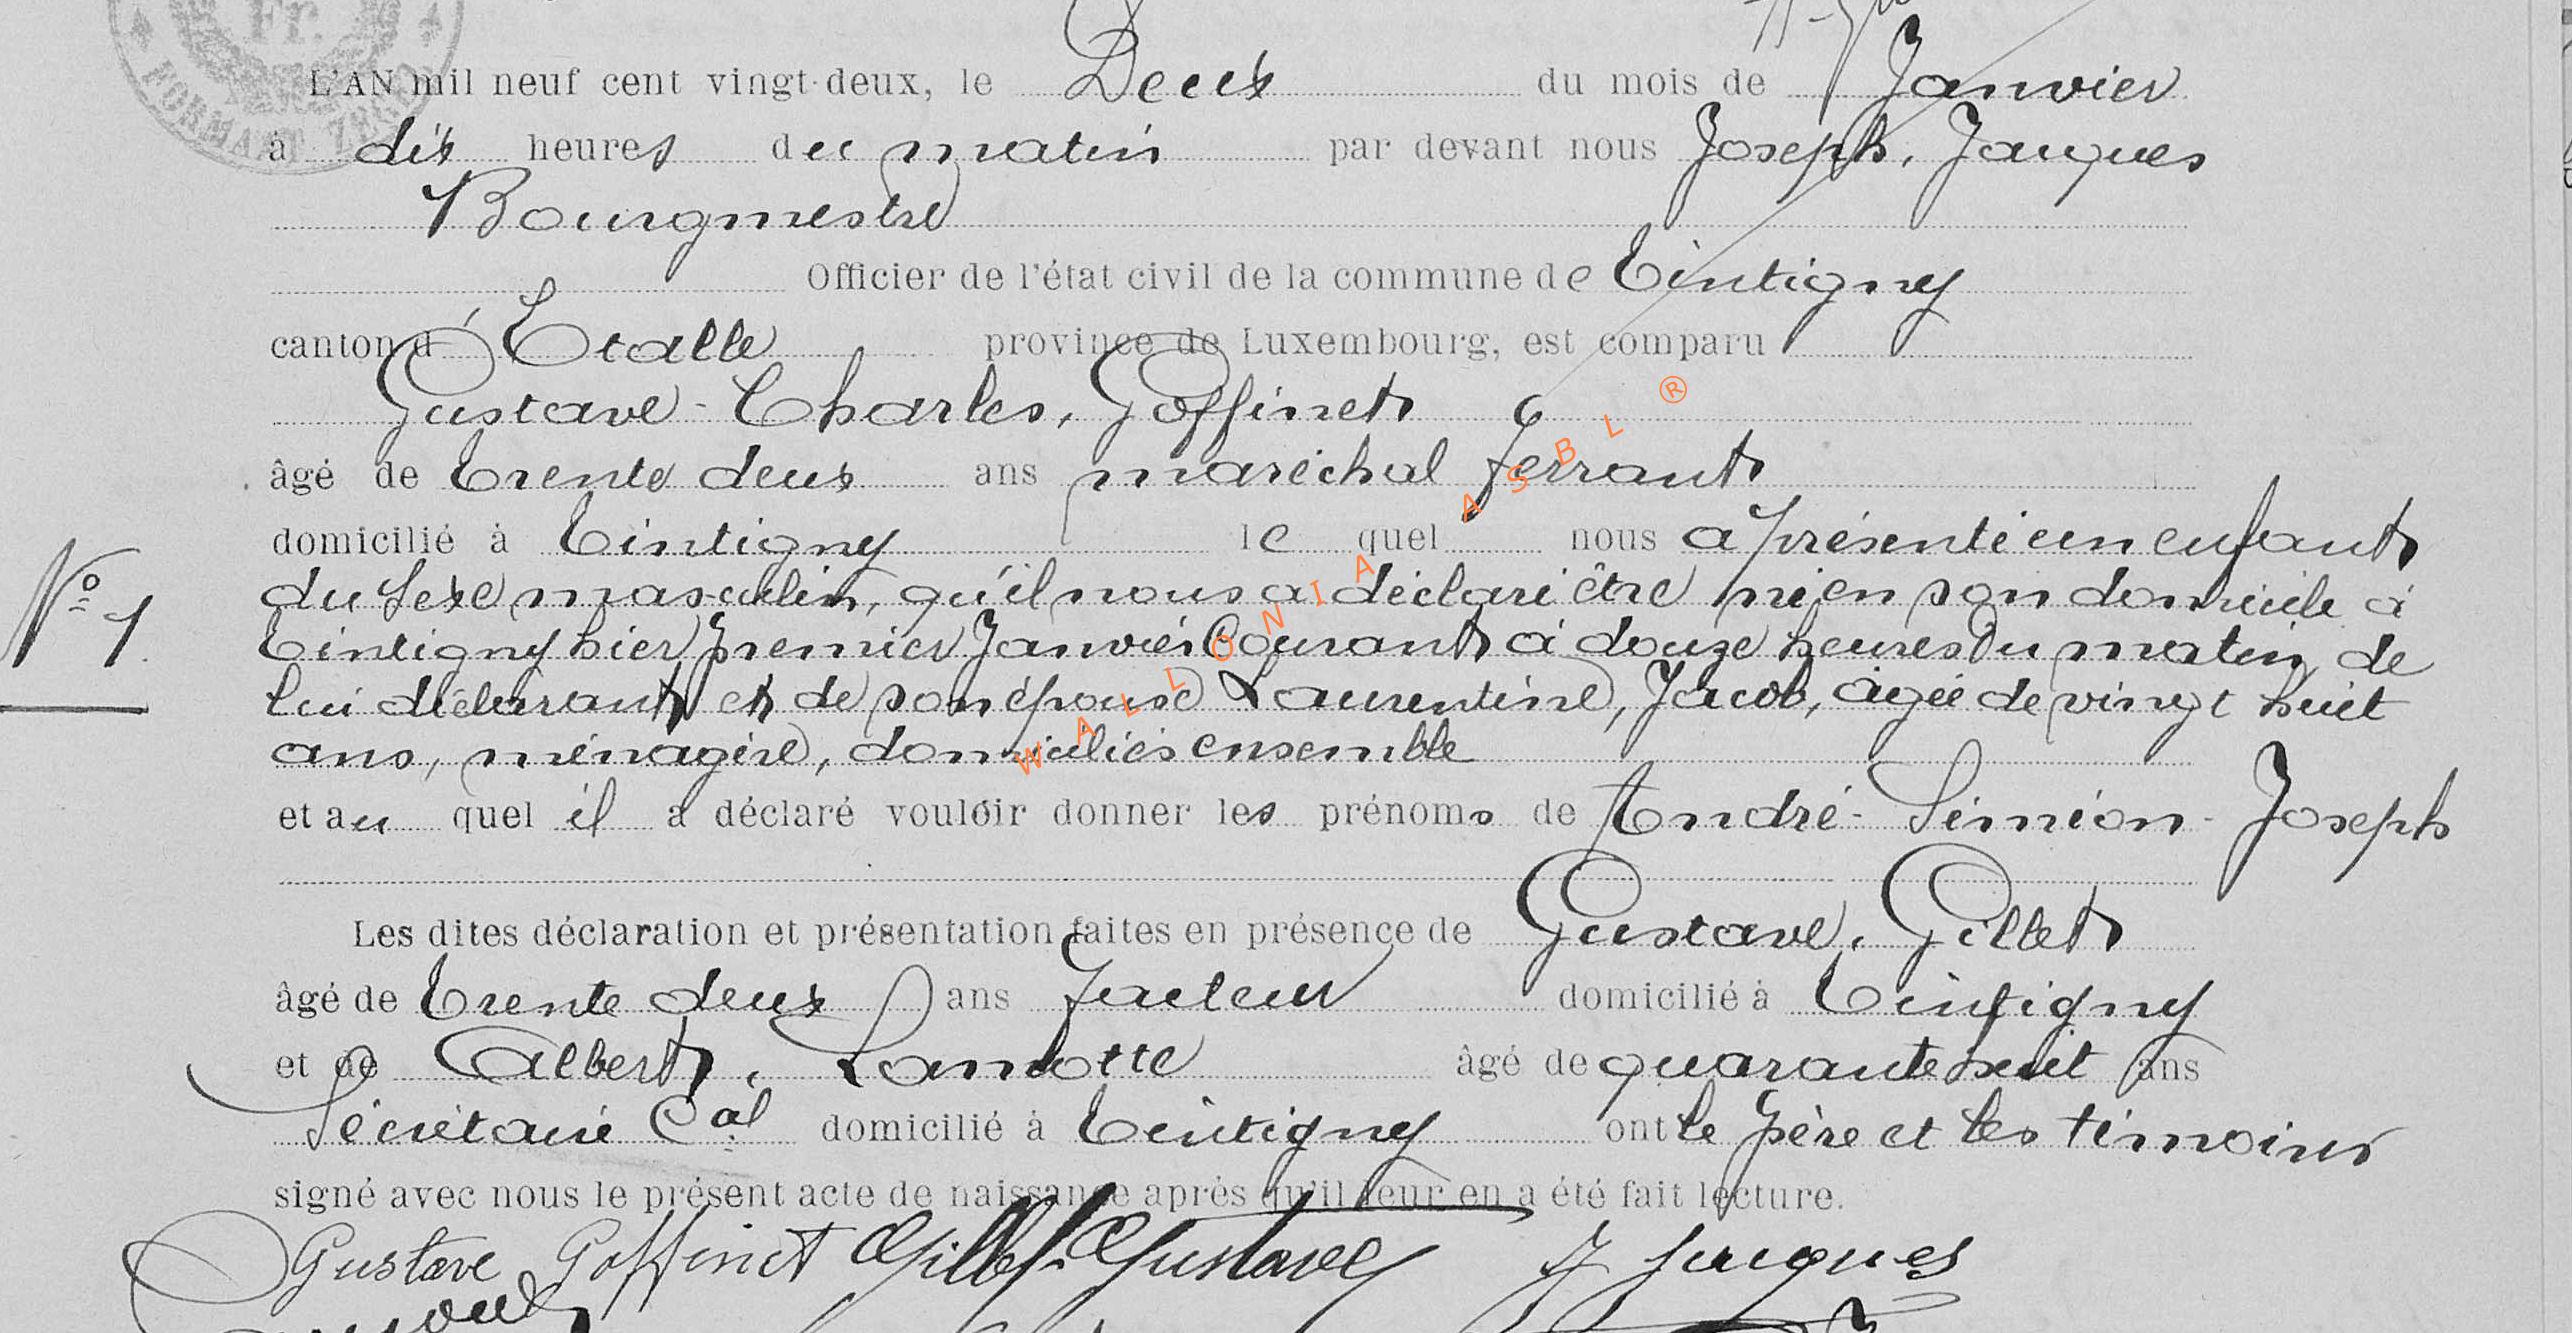 Fr.
FORMAAT ZEGEL
L'AN mil neuf cent vingt-deux, le Deux du mois de Janvier
à dix heures du matin par devant nous Joseph, Jacques
Bourgmestre
Officier de l'état civil de la commune de Tintigny
canton d'Etalle province de Luxembourg, est comparu
Gustave-Charles, Goffinet
âgé de trente deux ans maréchal ferrant
domicilié à Tintigny le quel nous a présenté un enfant
du sexe masculin, qu'il nous a déclaré être né en son domicile à
N° 1
Tintigny hier premier Janvier Courant à douze heures du matin, de
lui déclarant et de son épouse Laurentine, Jacob, âgée de vingt huit
ans, ménagère, domiciliés ensemble
et au quel il a déclaré vouloir donner les prénoms de André-Siméon-Joseph
Les dites déclaration et présentation faites en présence de Gustave, Gillet
âgé de trente deux ans facteur domicilié à Tintigny
et de Albert, Lamotte âgé de quarante huit ans
Sécrétaire Cal domicilié à Tintigny ont le père et les témoins
signé avec nous le présent acte de naissance après qu'il leur en a été fait lecture.
Gustave Goffinet Gillet Gustave J Jacques
WALLONIA ASBL ®